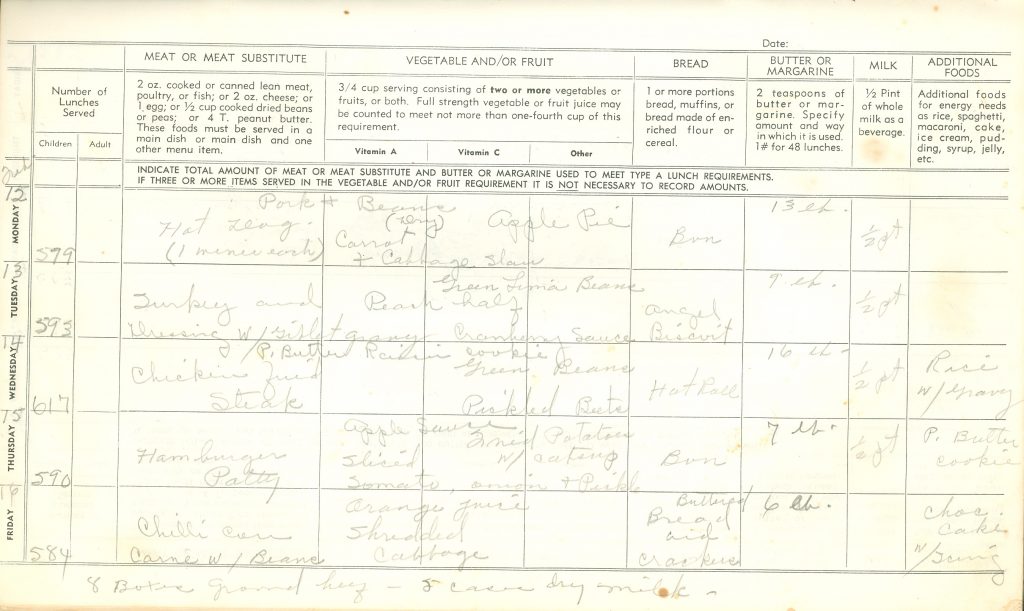 Date:
MEAT OR MEAT SUBSTITUTE
VEGETABLE AND/OR FRUIT
BREAD
BUTTER OR MARGARINE
MILK
ADDITIONAL FOODS
Number of
Lunches
Served
2 oz. cooked or canned lean meat,
poultry, or fish; or 2 oz. cheese; or
1 egg; or ½ cup cooked dried beans
or peas; or 4 T. peanut butter.
These foods must be served in a
main dish or main dish and one
other menu item.
3/4 cup serving consisting of two or more vegetables or
fruits, or both. Full strength vegetable or fruit juice may
be counted to meet not more than one-fourth cup of this
requirement.
1 or more portions
bread, muffins, or
bread made of en-
riched flour or
cereal.
2 teaspoons of
butter or mar-
garine. Specify
amount and way
in which it is used.
1# for 48 lunches.
½ Pint
of whole
milk as a
beverage.
Additional foods
for energy needs
as rice, spaghetti,
macaroni, cake,
ice cream, pud-
ding, syrup, jelly,
etc.
Children
Adult
Vitamin A
Vitamin C
Other
INDICATE TOTAL AMOUNT OF MEAT OR MEAT SUBSTITUTE AND BUTTER OR MARGARINE USED TO MEET TYPE A LUNCH REQUIREMENTS.
IF THREE OR MORE ITEMS SERVED IN THE VEGETABLE AND/OR FRUIT REQUIREMENT IT IS NOT NECESSARY TO RECORD AMOUNTS.
12
MONDAY
599
Pork + Beans
(Dry)
Hot Dog.
(1 each)
Carrot
+ Cabbage Slaw
Apple Pie
Bun
13 lb.
½ pt
13
TUESDAY
593
Turkey and
Dressing W/Giblet gravy
Pear half
Green Lima Beans
Cranberry Sauce
Angel
Biscuit
9 lb.
½ pt
14
WEDNESDAY
617
P. Butter Raisin cookie
Chicken Fried
Steak
Green Beans
Pickled Beets
Hot Roll
16 lb.
½ pt
Rice
w/ Gravy
15
THURSDAY
590
Hamburger
Patty
Apple Sauce
Sliced
Tomato, onion + Pickle
Fried Potatoes
w/ catsup
Bun
7 lb.
½ pt
P. Butter
cookie
16
FRIDAY
584
Chilli con
Carne W/ Beans
Orange juice
Shredded
Cabbage
Buttered
Bread
and
Crackers
6 lb.
Choc.
Cake
w/ Icing
8 Boxes Ground beef - 5 cases dry milk -